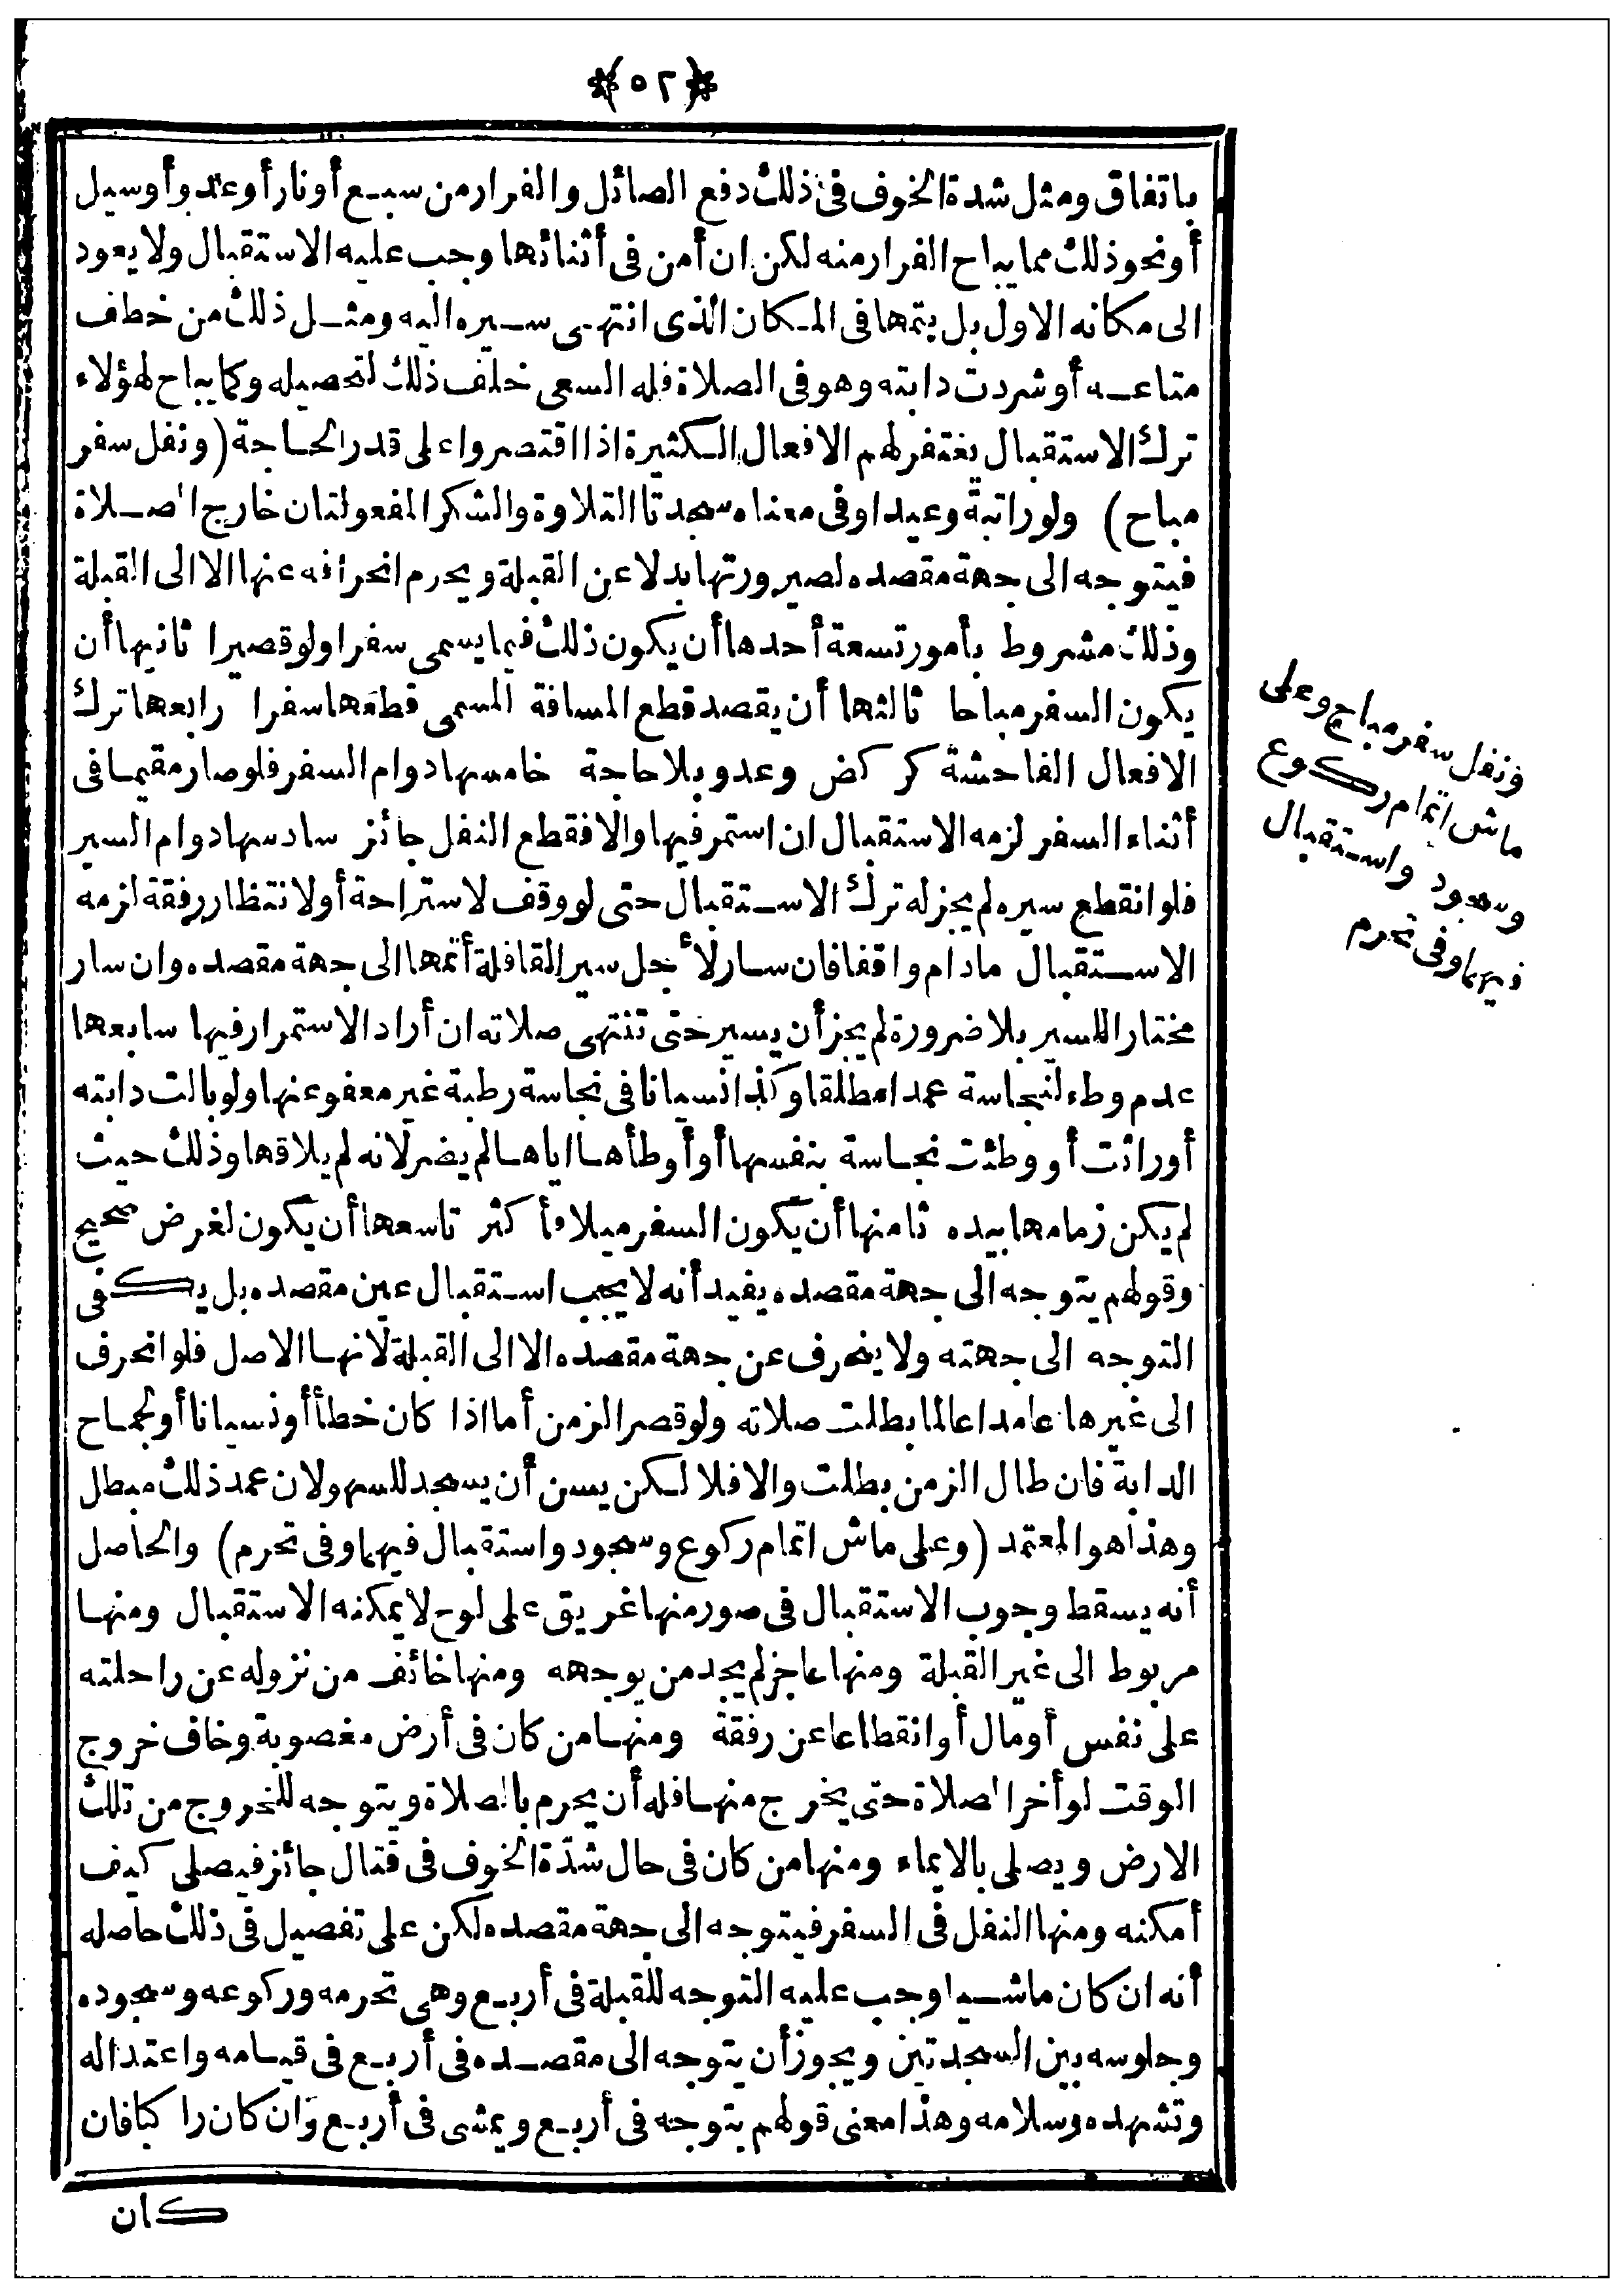 ﴿٥٢﴾
باتفاق ومثل شدة الخوف فى ذلك دفع الصائل والفرار من سبع أونار أوعدو أوسيل
أونحو ذلك مما يباح الفرار منه لكن ان أمن فى أثنائها وجب عليه الاستقبال ولا يعود
الى مكانه الاول بل يتمها فى المكان الذى انتهى سيره اليه ومثل ذلك من خطف
متاعه أوشردت دابته وهو فى الصلاة فله السعى خلف ذلك لتحصيله وكما يباح لهؤلاء
ترك الاستقبال يغتفر لهم الافعال الكثيرة اذا اقتصروا على قدر الحاجة (ونفل سفر
مباح) ولو راتبة وعيدا وفى معناه سجدتا التلاوة والشكر المفعولتان خارج الصلاة
فيتوجه الى جهة مقصده لصيرورتها بدلا عن القبلة ويحرم انحرافه عنها الا الى القبلة
وذلك مشروط بأمور تسعة أحدها أن يكون ذلك فيما يسمى سفرا ولو قصيرا ثانيها أن
يكون السفر مباحا ثالثها أن يقصد قطع المسافة المسمى قطعها سفرا رابعها ترك
الافعال الفاحشة كركض وعدو بلا حاجة خامسها دوام السفر فلو صار مقيما فى
أثناء السفر لزمه الاستقبال ان استمر فيها والا فقطع النفل جائز سادسها دوام السير
فلو انقطع سيره لم يجز له ترك الاستقبال حتى لو وقف لاستراحة أولانتظار رفقة لزمه
الاستقبال مادام واقفا فان سار لأجل سير القافلة أتمها الى جهة مقصده وان سار
مختارا للسير بلا ضرورة لم يجز أن يسير حتى تنتهى صلاته ان أراد الاستمرار فيها سابعها
عدم وطء لنجاسة عمدا مطلقا وكذا نسيانا فى نجاسة رطبة غير معفو عنها ولو بالت دابته
أوراثت أو وطئت نجاسة بنفسها أو أوطأها اياها لم يضر لانه لم يلاقها وذلك حيث
لم يكن زمامها بيده ثامنها أن يكون السفر ميلا فأكثر تاسعها أن يكون لغرض صحيح
وقولهم يتوجه الى جهة مقصده يفيد أنه لا يجب استقبال عين مقصده بل يكفى
التوجه الى جهته ولا ينحرف عن جهة مقصده الا الى القبلة لانها الاصل فلو انحرف
الى غيرها عامدا عالما بطلت صلاته ولو قصر الزمن أما اذا كان خطأ أونسيانا أولجماح
الدابة فان طال الزمن بطلت والا فلا لكن يسن أن يسجد للسهو لان عمد ذلك مبطل
وهذا هو المعتمد (وعلى ماش اتمام ركوع وسجود واستقبال فيهما وفى تحرم) والحاصل
أنه يسقط وجوب الاستقبال فى صور منها غريق على لوح لا يمكنه الاستقبال ومنها
مربوط الى غير القبلة ومنها عاجز لم يجد من يوجهه ومنها خائف من نزوله عن راحلته
على نفس أومال أوانقطاعا عن رفقة ومنها من كان فى أرض مغصوبة وخاف خروج
الوقت لو أخر الصلاة حتى يخرج منها فله أن يحرم بالصلاة ويتوجه للخروج من تلك
الارض ويصلى بالايماء ومنها من كان فى حال شدة الخوف فى قتال جائز فيصلى كيف
أمكنه ومنها النفل فى السفر فيتوجه الى جهة مقصده لكن على تفصيل فى ذلك حاصله
أنه ان كان ماشيا وجب عليه التوجه للقبلة فى أربع وهى تحرمه وركوعه وسجوده
وجلوسه بين السجدتين ويجوز أن يتوجه الى مقصده فى أربع فى قيامه واعتداله
وتشهده وسلامه وهذا معنى قولهم يتوجه فى أربع ويمشى فى أربع وان كان راكبا فان
كان
ونفل سفر مباح وعلى
ماش اتمام ركوع
وسجود واستقبال
فيهما وفى تحرم